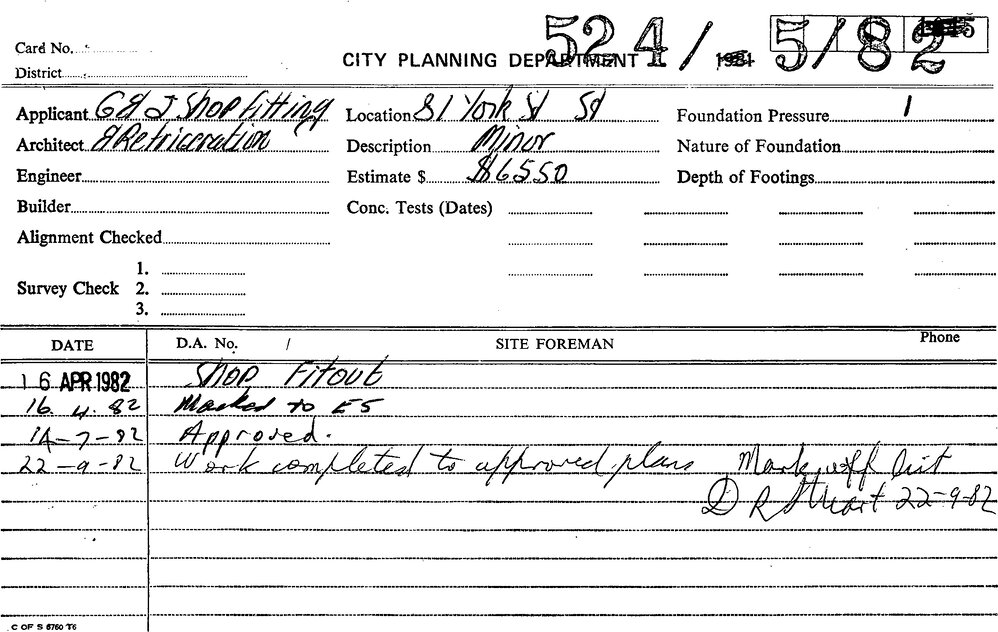 Card No.
524/5/82
CITY PLANNING DEPARTMENT
District
Applicant G & J Shop Fitting Location 81 York St Sd Foundation Pressure 1
Architect & Refriceration Description Minor Nature of Foundation
Engineer Estimate $ $6550 Depth of Footings
Builder Conc. Tests (Dates)
Alignment Checked
1.
Survey Check 2.
3.
DATE D.A. No. / SITE FOREMAN Phone
16 APR 1982 Shop Fitout
16. 4. 82 Marked to ES
14-7-82 Approved.
22-9-82 Work completed to approved plans Mark off list
D R Stuart 22-9-82
C OF S 6760 T6